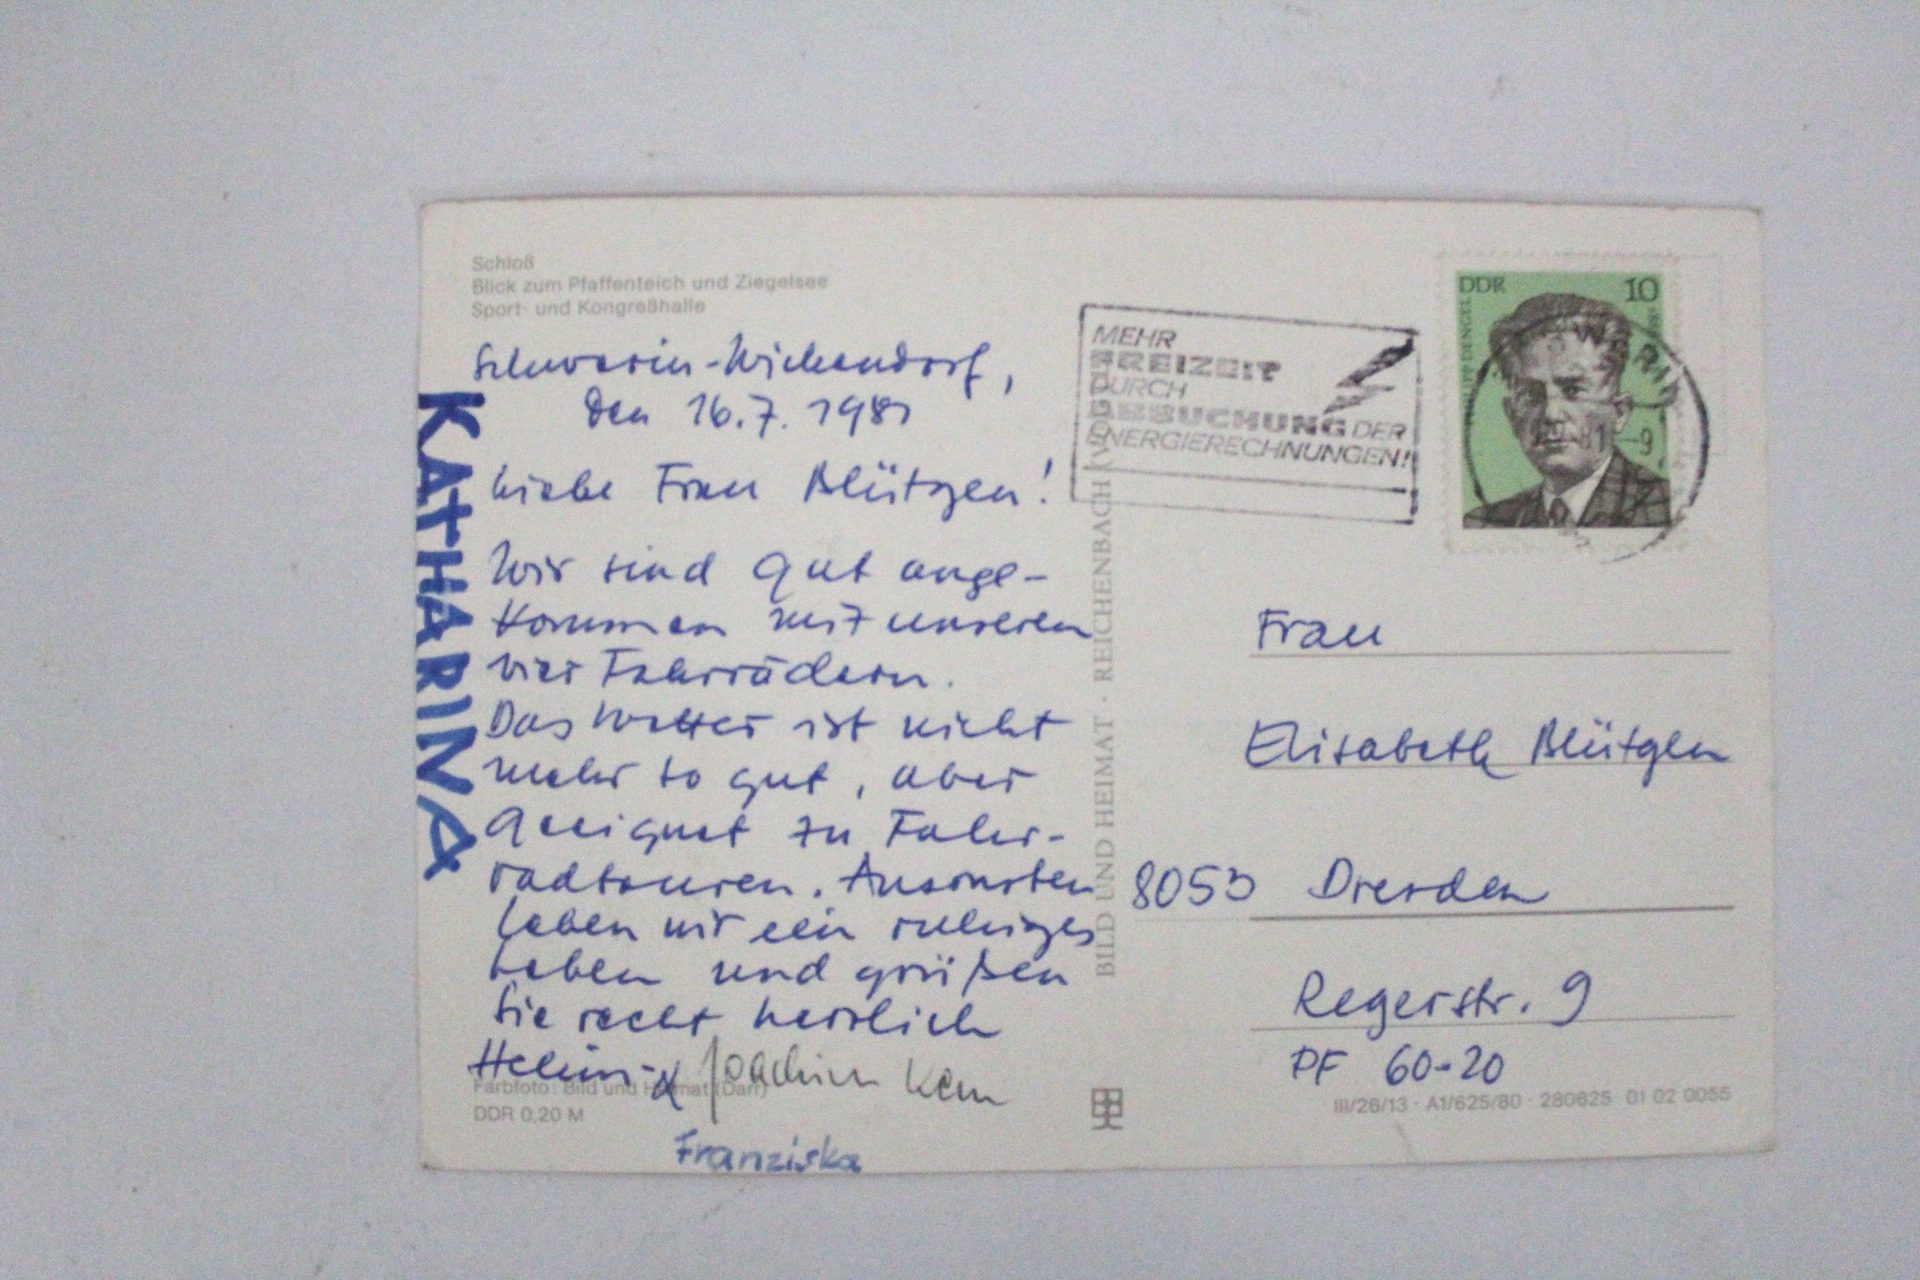 Schloß
Blick zum Pfaffenteich und Ziegelsee
Sport- und Kongreßhalle
Schwerin-Wickendorf,
den 16.7. 1981
Liebe Frau Blütgen!
Wir sind gut ange-
kommen mit unseren
vier Fahrrädern.
Das Wetter ist nicht
mehr so gut, aber
geeignet zu Fahr-
radtouren. Ansonsten
leben wir ein ruhiges
Leben und grüßen
Sie recht herzlich
& Joachim Kern
Franziska
KATHARINA
Farbfoto: Bild und Heimat (Darr)
DDR 0,20 M
BILD UND HEIMAT · REICHENBACH (VOGTL)
MEHR
FREIZEIT
DURCH
ABBUCHUNG DER
ENERGIERECHNUNGEN!
DDR 10
PHILIPP DENGEL
SCHWERIN
81-9
Frau
Elisabeth Blütgen
8053 Dresden
Regerstr. 9
PF 60-20
III/26/13 · A1/625/80 · 280625 01 02 0055